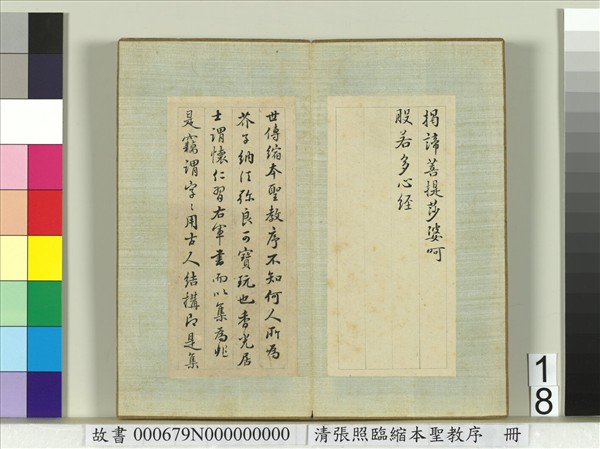 揭諦菩提莎婆呵
般若多心經
世傳縮本聖教序不知何人所為
芥子納須弥良可寶玩也香光居
士謂懷仁習右軍書而以集為非
是竊謂字々用古人結構即是集
18
故書 000679N000000000 清張照臨縮本聖教序 冊